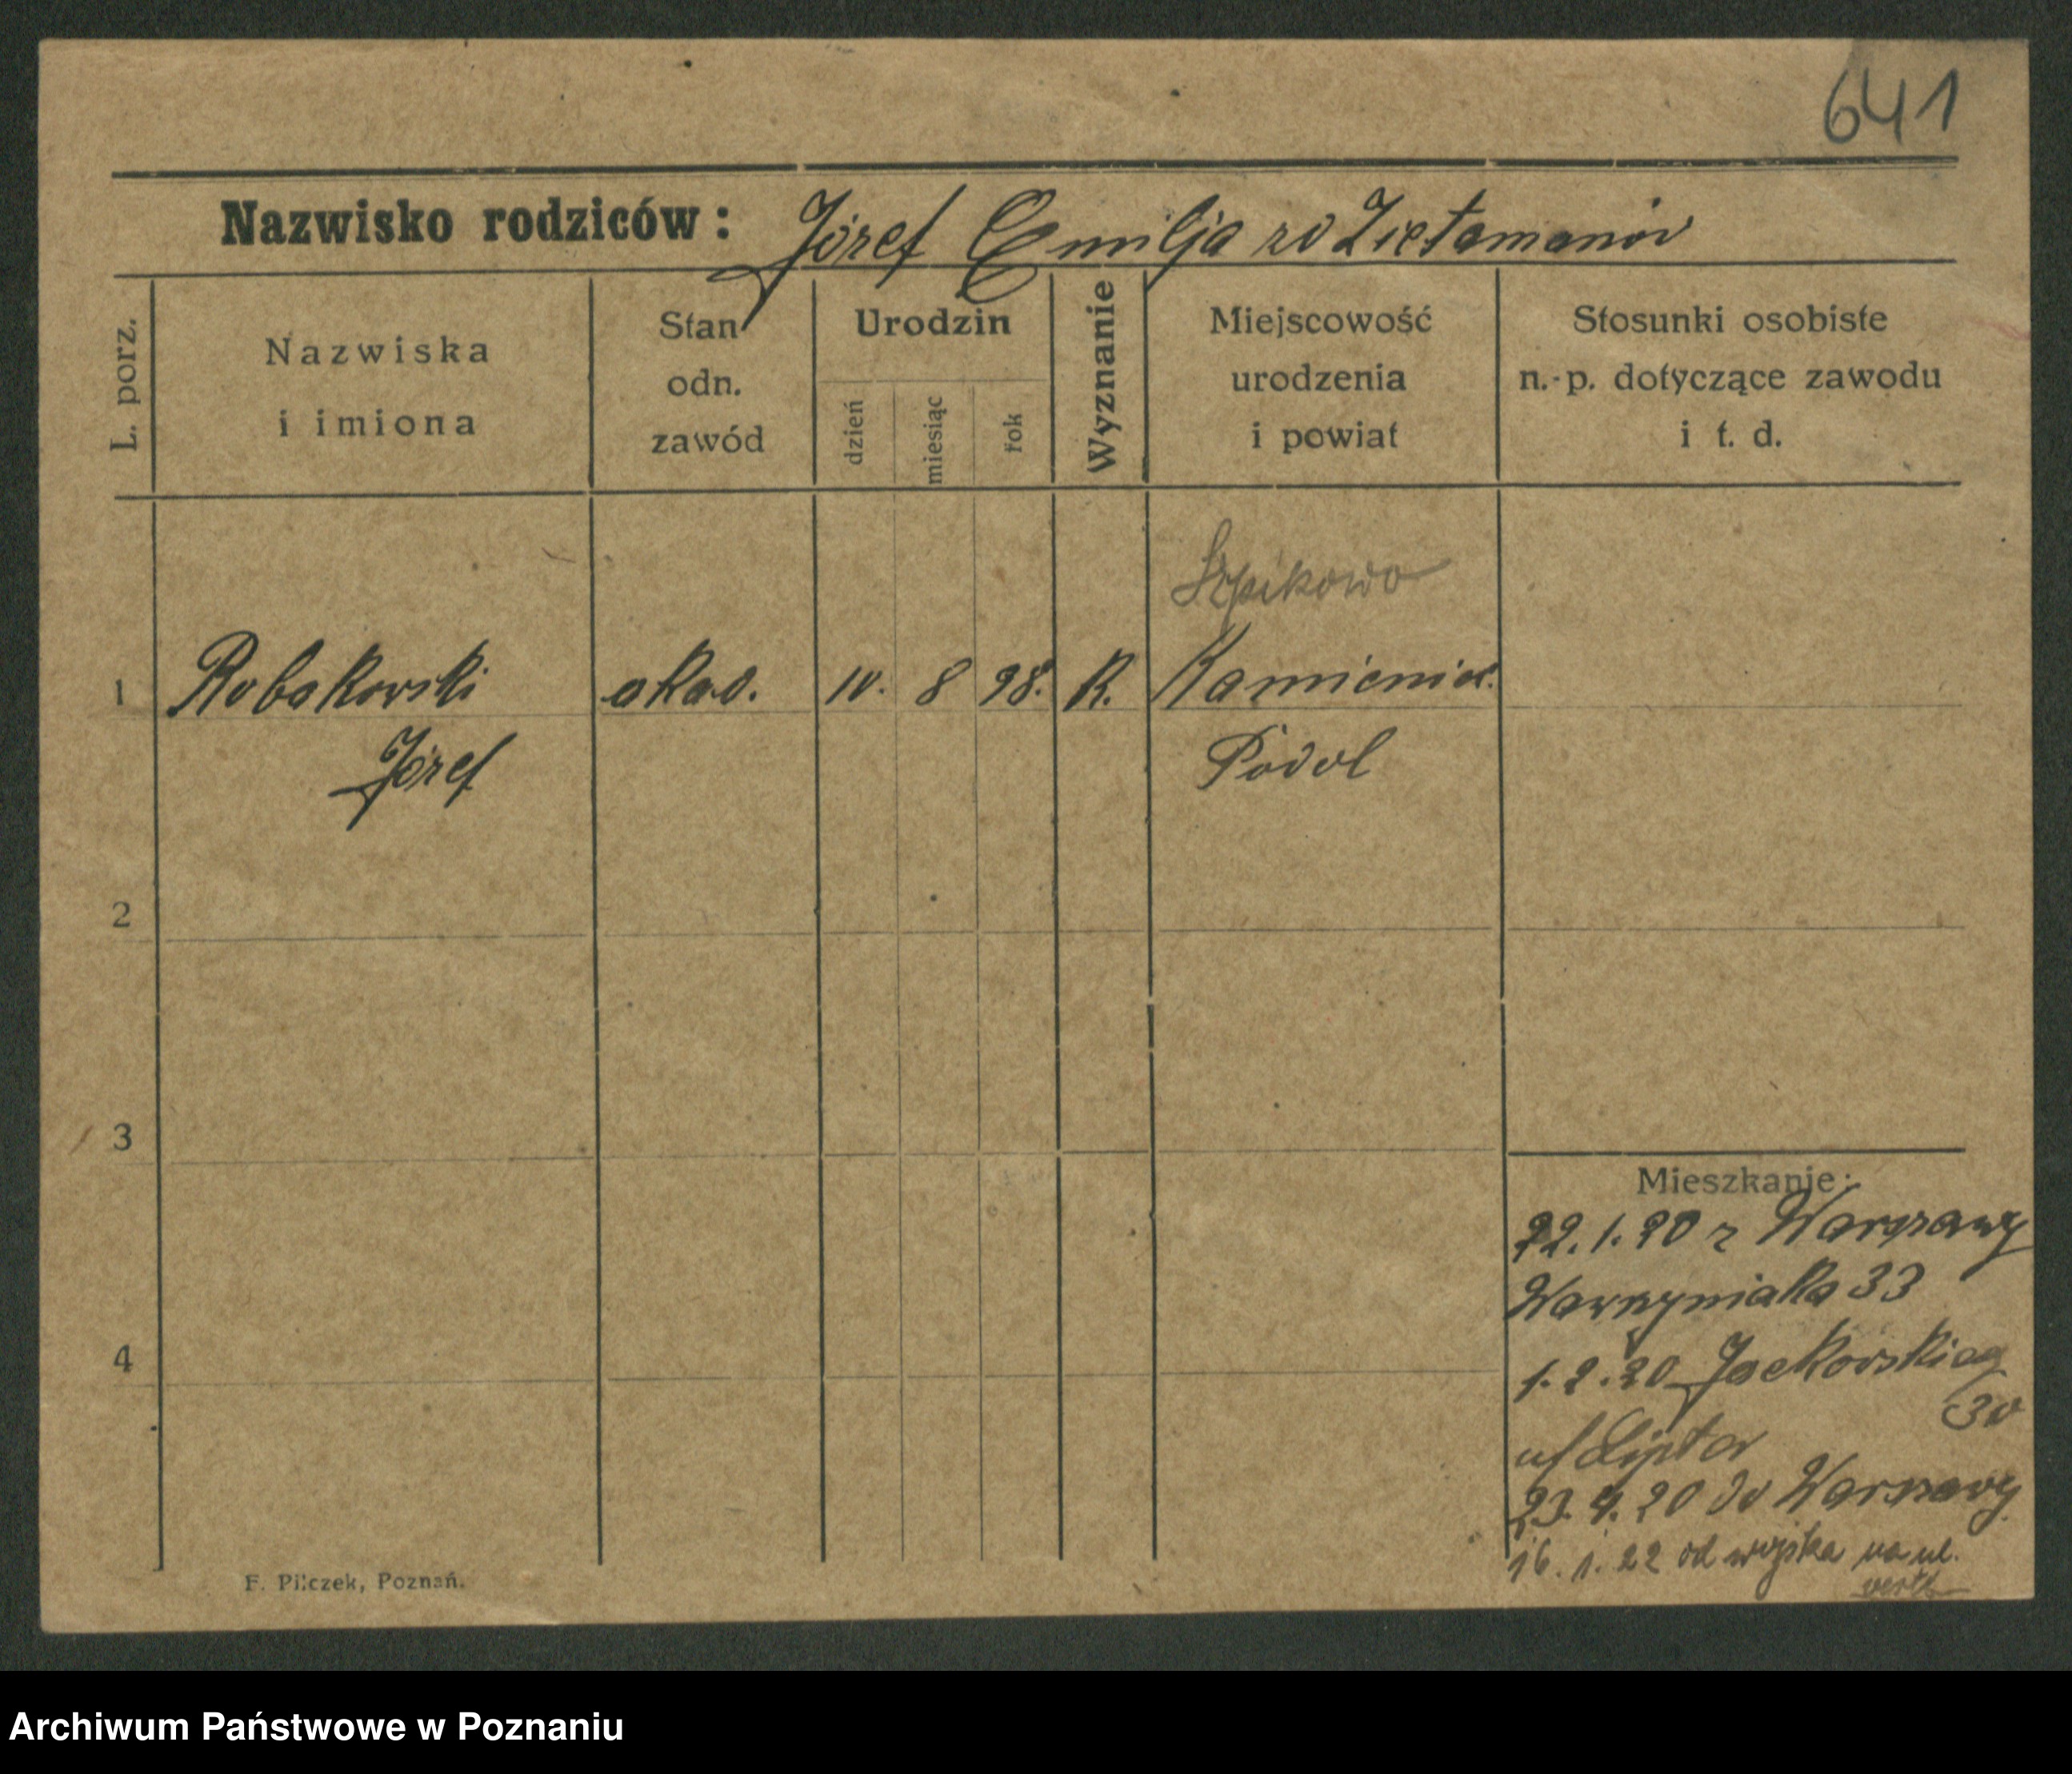 641
Nazwisko rodziców: Józef Emilja zd Zietamanów
L. porz.
Nazwiska
i imiona
Stan
odn.
zawód
Urodzin
dzień
miesiąc
rok
Wyznanie
Miejscowość
urodzenia
i powiat
Stosunki osobiste
n.-p. dotyczące zawodu
i t. d.
Szpikowo
1 Robakowski akad. 10. 8 98. R. Kamieniec.
Józef Podol
2
3
Mieszkanie:
22.1.20 z Warszawy
Wawrzyniaka 33
4
1.2.20 Jackowskieg
30
23.4.20 do Warszawy.
16.1.22 od wojska na ul.
F. Pilczek, Poznań.
Archiwum Państwowe w Poznaniu